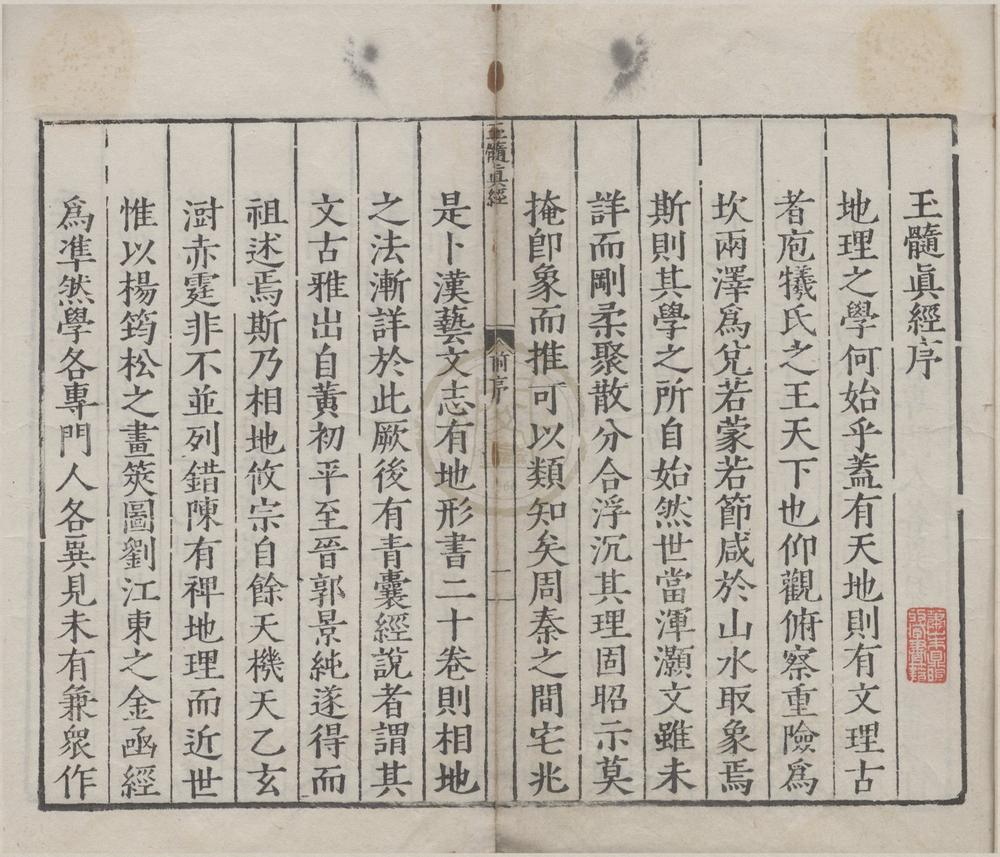 玉髓眞經序
地理之學何始乎蓋有天地則有文理古
者庖犧氏之王天下也仰觀俯察重險爲
坎兩澤爲兌若蒙若節咸於山水取象焉
斯則其學之所自始然世當渾灝文雖未
詳而剛柔聚散分合浮沉其理固昭示莫
掩卽象而推可以類知矣周秦之間宅兆
玉髓眞經
前序
一
是卜漢藝文志有地形書二十卷則相地
之法漸詳於此厥後有青囊經說者謂其
文古雅出自黃初平至晉郭景純遂得而
祖述焉斯乃相地攸宗自餘天機天乙玄
澍赤霆非不並列錯陳有裨地理而近世
惟以楊筠松之畫筴圖劉江東之金函經
爲準然學各專門人各異見未有兼衆作